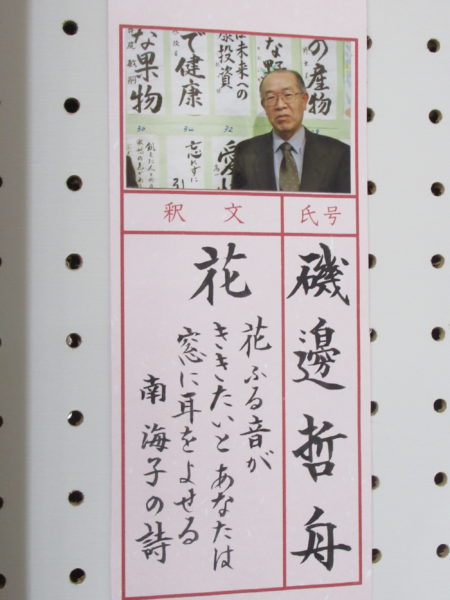 の産物
な野
は未来への
康投資
で健康
な果物
32
34
愛
忘れずに
氏号
釈文
磯邊哲舟
花
花ぶる音が
ききたいとあなたは
窓に耳をよせる
南海子の詩